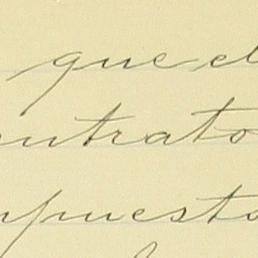 que el
ntrato
puesto